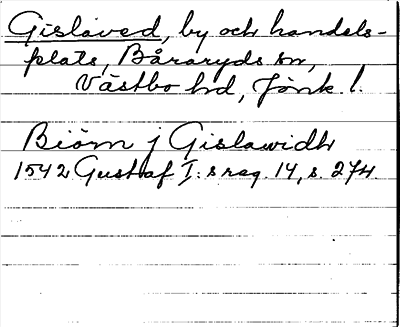 Gislaved, by och handels-
plats, Båraryds sn,
Västbo hd, Jönk. l.
Biörn j Gislawidh
1542 Gustaf I:s reg. 14, s. 274.